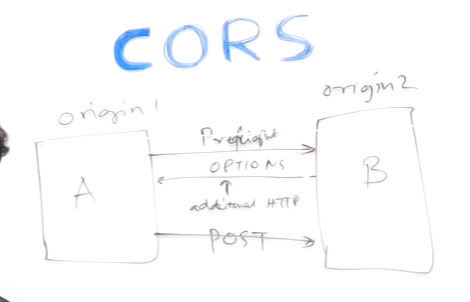 CORS
origin1
origin2
Preflight
OPTIONS
A
B
additional HTTP
POST